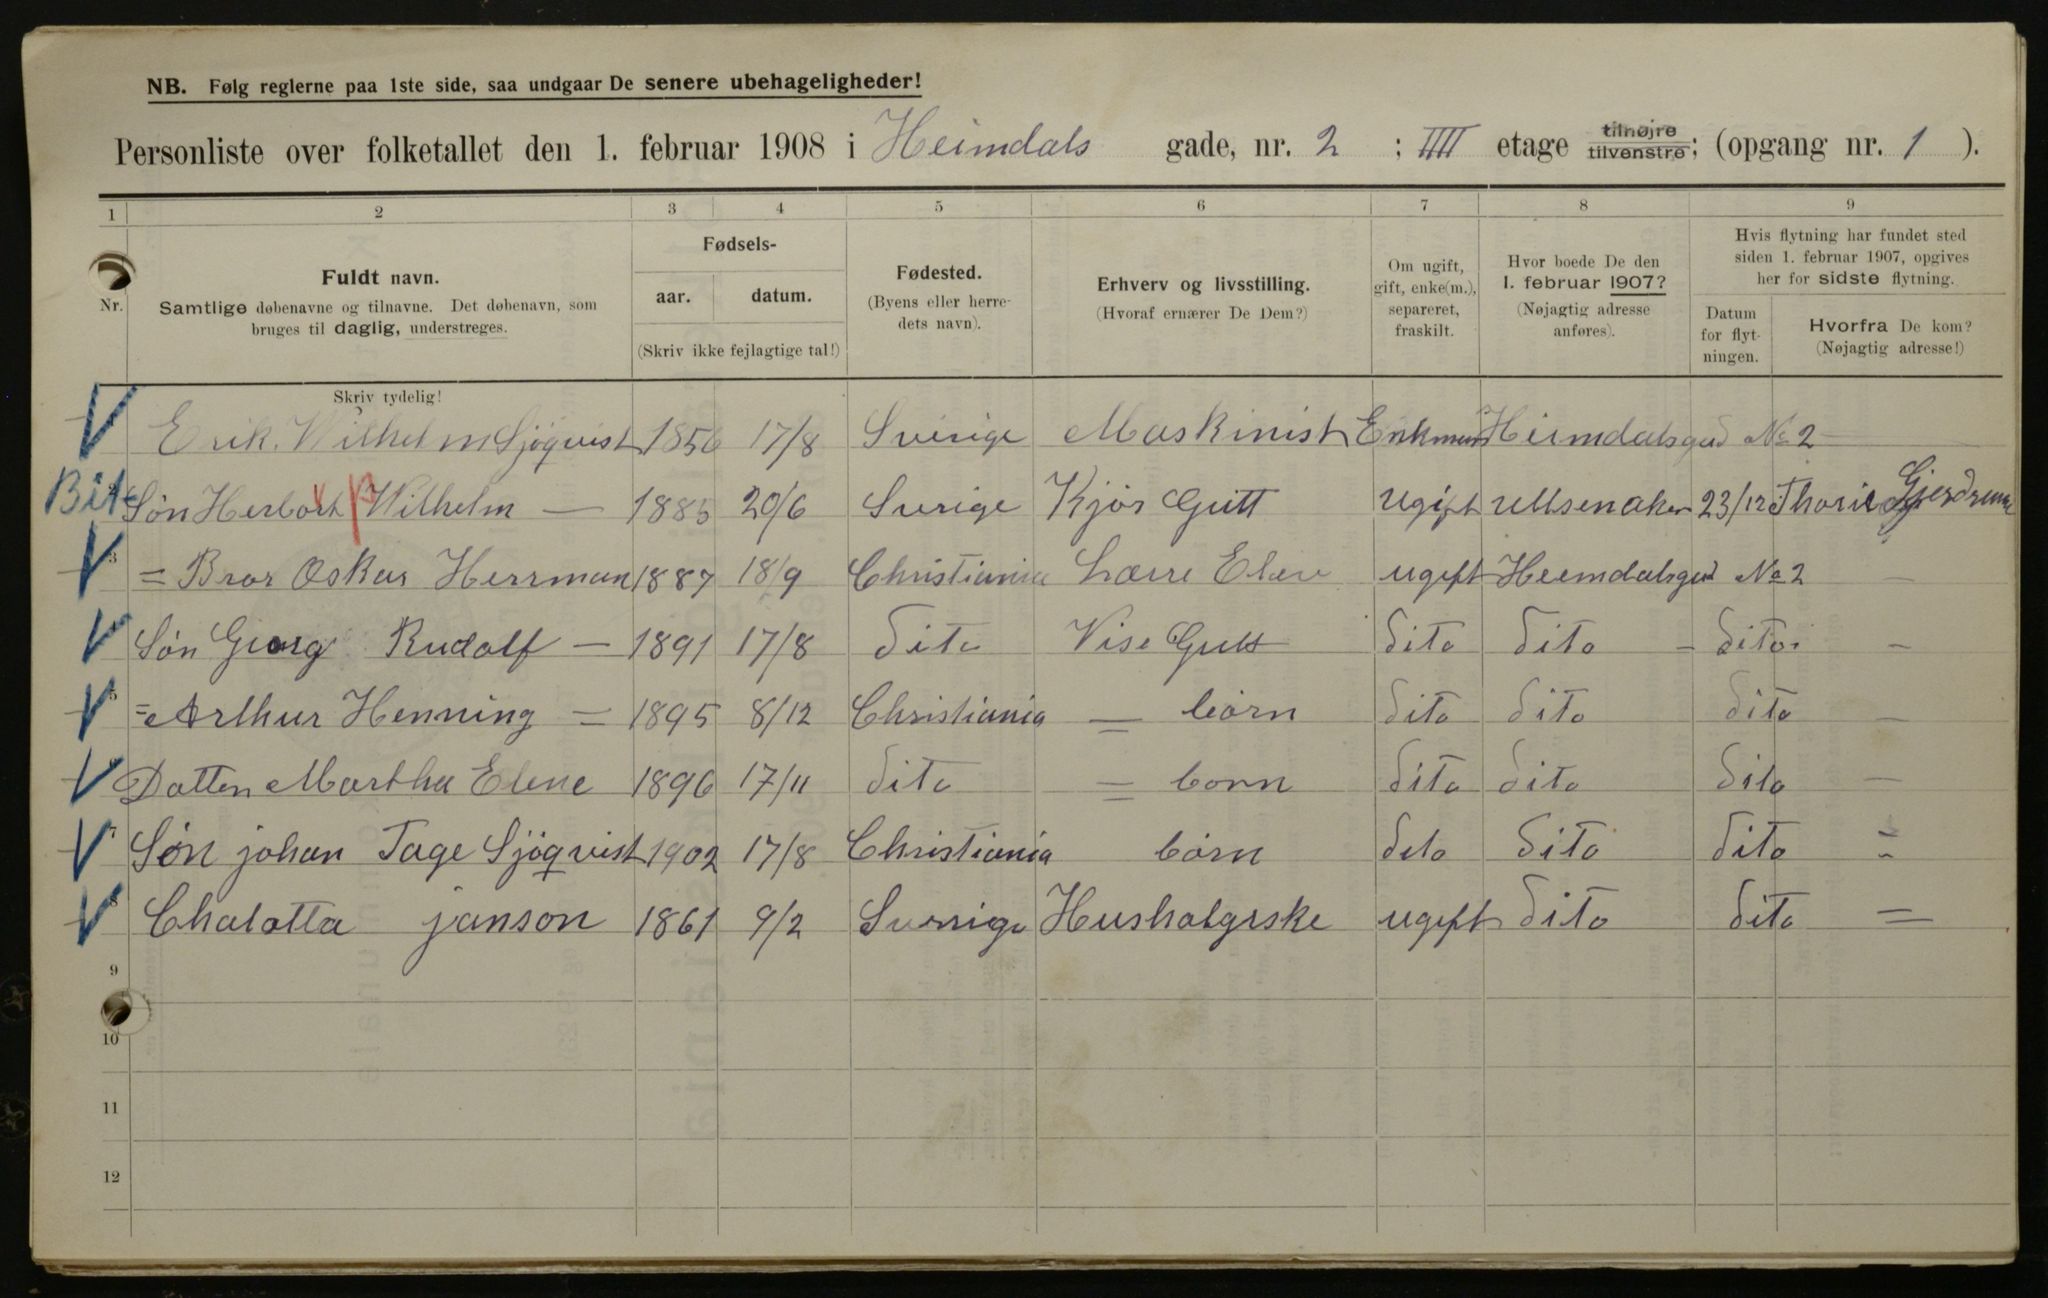 NB. Følg reglerne paa 1ste side, saa undgaar De senere ubehageligheder!
Personliste over folketallet den 1. februar 1908 i Heimdals gade, nr. 2 ; IIII etage tilhøjre tilvenstre; (opgang nr. 1 ).
1 2 3 4 5 6 7 8 9
Nr. Fuldt navn. Samtlige døbenavne og tilnavne. Det døbenavn, som bruges til daglig, understreges.
Fødsels- aar. datum. (Skriv ikke fejlagtige tal!)
Fødested. (Byens eller herredets navn).
Erhverv og livsstilling. (Hvoraf ernærer De Dem?)
Om ugift, gift, enke(m.), separeret, fraskilt.
Hvor boede De den 1. februar 1907? (Nøjagtig adresse anføres).
Hvis flytning har fundet sted siden 1. februar 1907, opgives her for sidste flytning.
Datum for flytningen. Hvorfra De kom? (Nøjagtig adresse!)
Skriv tydelig!
Erik. Wilhelm Sjöqvist 1856 17/8 Sverige Maskinist Enkman Heimdalsgad No 2
Bit. Søn Herbort Wilhelm — 1885 20/6 Sverige Kjör Gutt ugift 23/12 Gjerdrum
3 = Bror Oskar Herrman 1887 18/9 Christiania Lærre Elev ugift Heimdalsgad No 2 —
Søn Georg Rudolf — 1891 17/8 dito Vise Gutt dito dito – dito —
5 = Arthur Henning = 1895 8/12 Christiania = börn dito dito dito —
Datten Martha Elene 1896 17/11 dito = born dito dito dito —
7 Søn johan Tage Sjöqvist 1902 17/8 Christiania börn dito dito dito =
8 Chalotta janson 1861 9/2 Sverrige Husholgrske ugift dito dito =
9
10
11
12